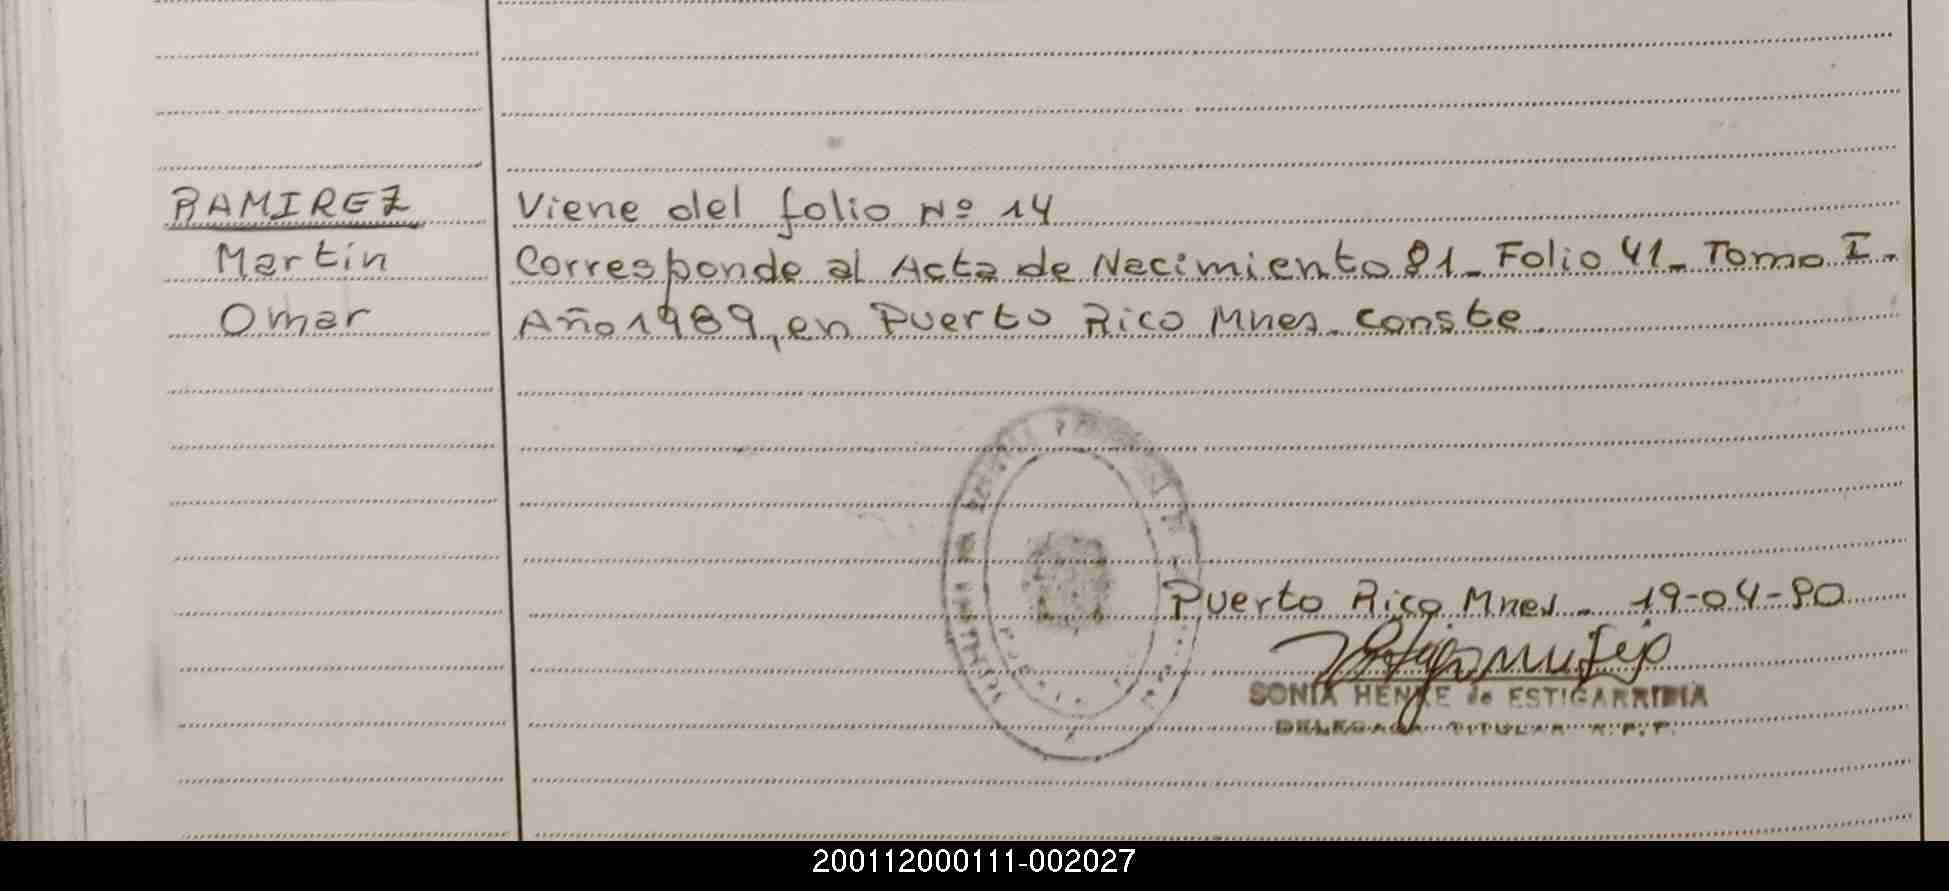 RAMIREZ Viene del folio Nº 14
Martín Corresponde al Acta de Nacimiento 81_ Folio 41_ Tomo I.
Omar Año 1989, en Puerto Rico Mnes. conste.
Puerto Rico Mnes. 19-04-90
SONIA HENKE de ESTIGARRIBIA
DELEGADA TITULAR R.P.P.
200112000111-002027